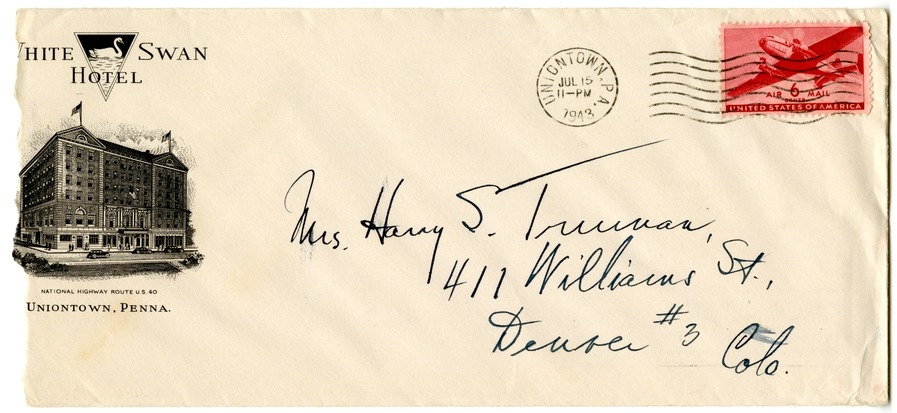 WHITE SWAN
HOTEL
NATIONAL HIGHWAY ROUTE U.S. 40
UNIONTOWN, PENNA.
UNIONTOWN, PA.
JUL 15
11-PM
1943
AIR 6 MAIL
CENTS
UNITED STATES OF AMERICA
Mrs. Harry S. Truman,
411 Williams St.,
Denver #3
Colo.